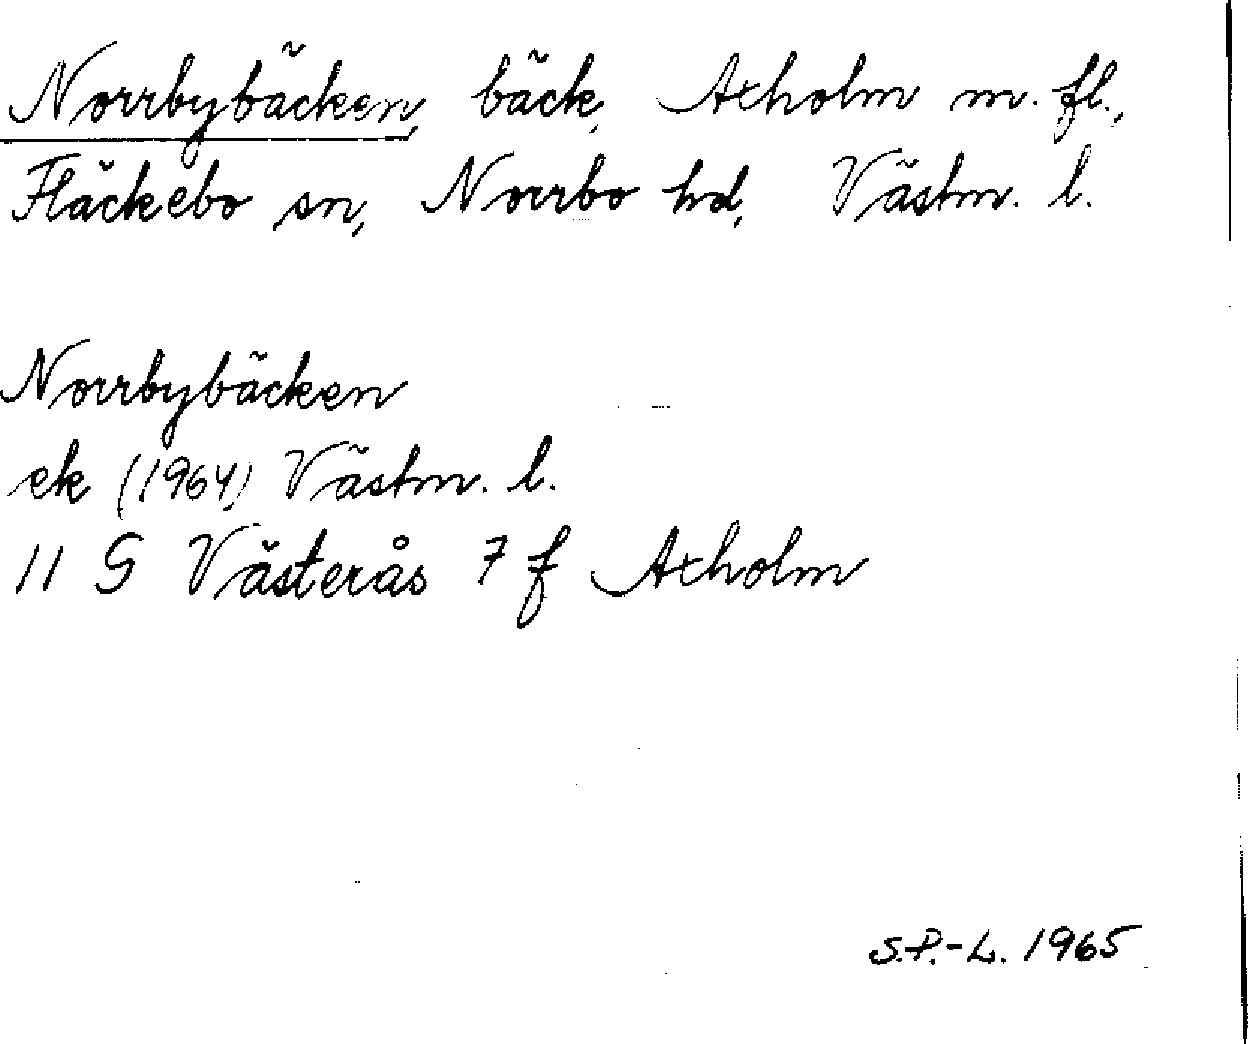 Norrbybäcken, bäck, Axholm m. fl.,
Fläckebo sn, Norrbo hd, Västm. l.
Norrbybäcken
ek (1964) Västm. l.
11 G Västerås 7 f Axholm
S.P.-L. 1965